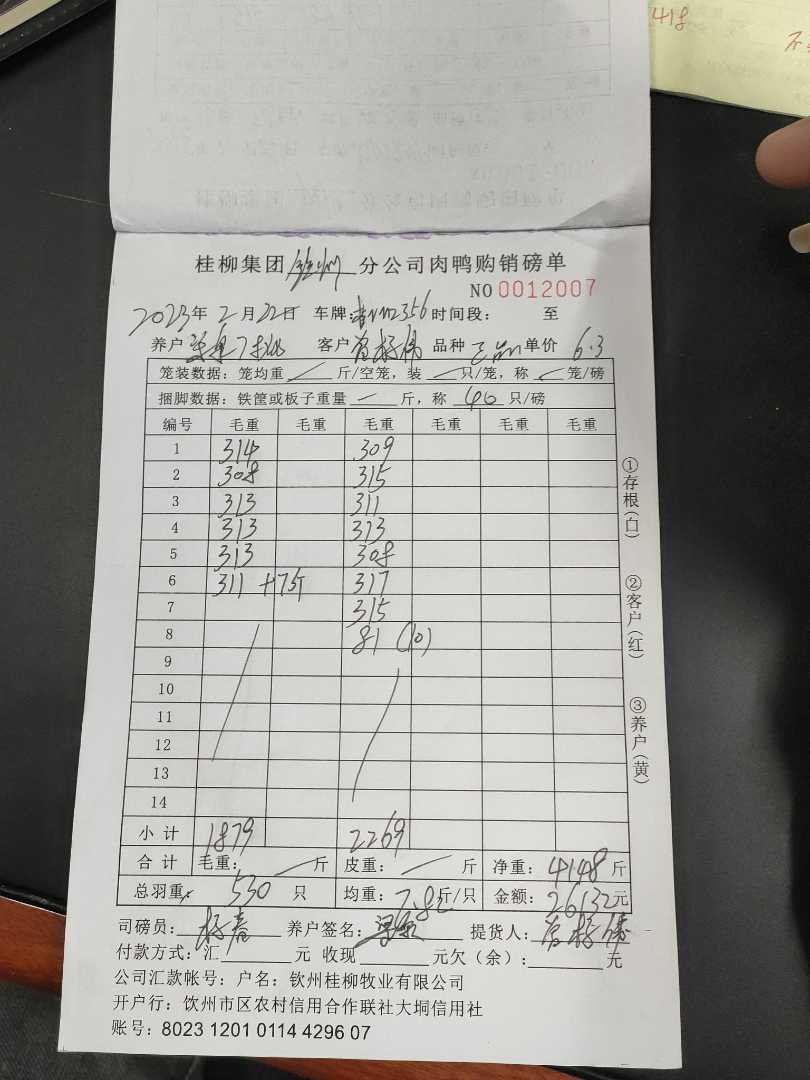 418
桂柳集团钦州分公司肉鸭购销磅单
NO 0012007
2023年2月22日 车牌: 356 时间段: 至
养户 客户 品种 单价 6.3
笼装数据: 笼均重 斤/空笼, 装 只/笼, 称 笼/磅
捆脚数据: 铁筐或板子重量 一 斤, 称 40 只/磅
编号 毛重 毛重 毛重 毛重 毛重 毛重
1 314 309
2 308 315
3 313 311
4 313 313
5 313 308
6 311 +7斤 317
7 315
8 81 (10)
9
10
11
12
13
14
小计 1879 2269
合计 毛重: 斤 皮重: 斤 净重: 4148 斤
总羽重: 530 只 均重: 7.82斤/只 金额: 26132元
司磅员: 杨春 养户签名: 提货人:
付款方式: 汇 元 收现 元欠(余): 元
公司汇款帐号: 户名: 钦州桂柳牧业有限公司
开户行: 钦州市区农村信用合作联社大垌信用社
账号: 8023 1201 0114 4296 07
①存根(白)
②客户(红)
③养户(黄)